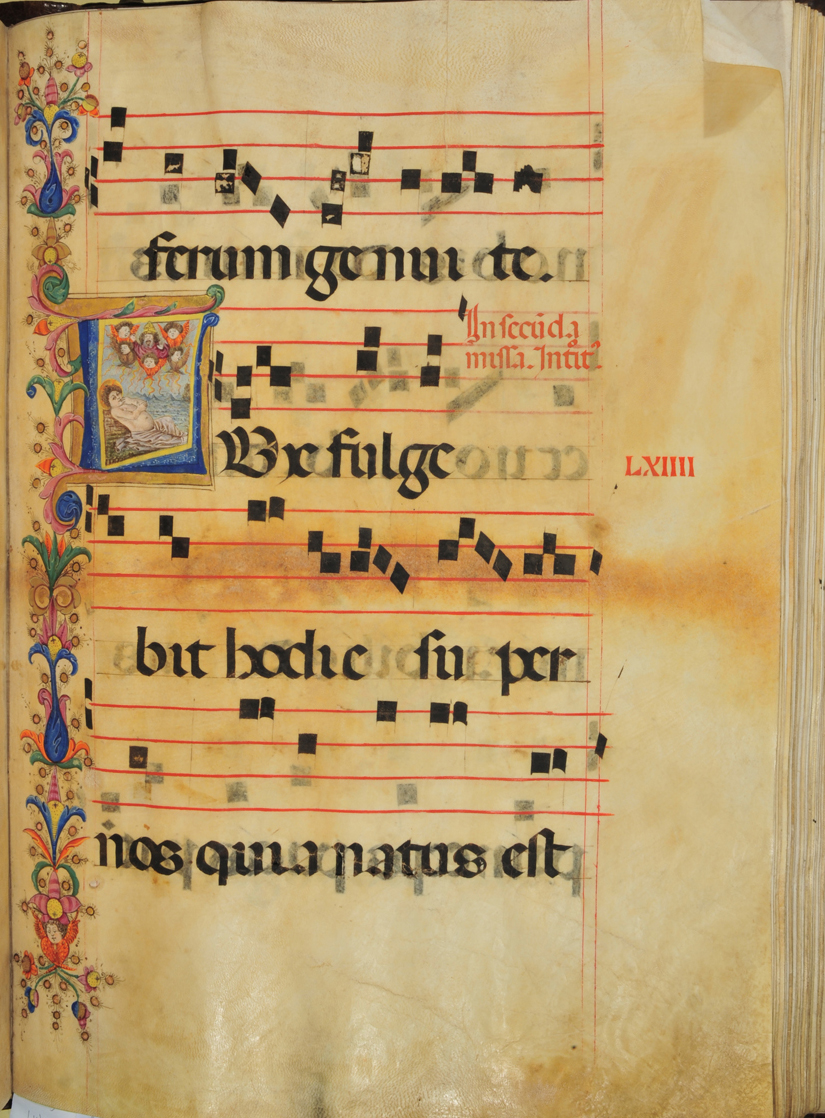 ferum genui te.
In secūda
missa. Intit.
LUx fulge
LXIIII
bit hodie su per
nos quia natus est